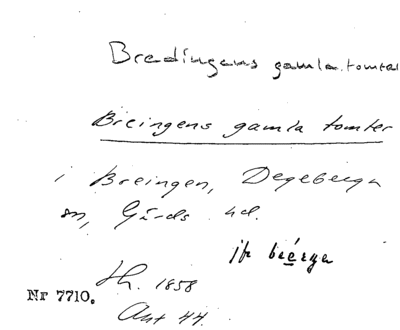 Bredingens gamla tomter
Breingens gamla tomter
i Breingen, Degeberga
sn, Gärds hd.
jfr breenga
Lh. 1858
Nr 7710.
Akt 44.